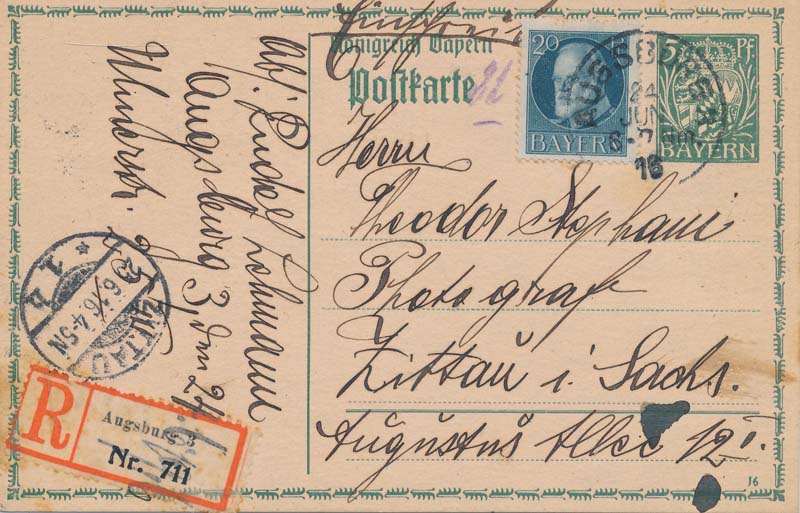 Einschreiben
Königreich Bayern
Postkarte
20
BAYERN
5 PF
BAYERN
AUGSBURG
24
JUN
16
Herrn
Theodor Stephani
Photograf
Zittau i. Sachs.
Augustus Allee 12 I.
Abs. Lehmann
Augsburg 3, den 24
ZITTAU
* 1 h
25 6 16 4-5N
R
Augsburg 3
Nr. 711
16